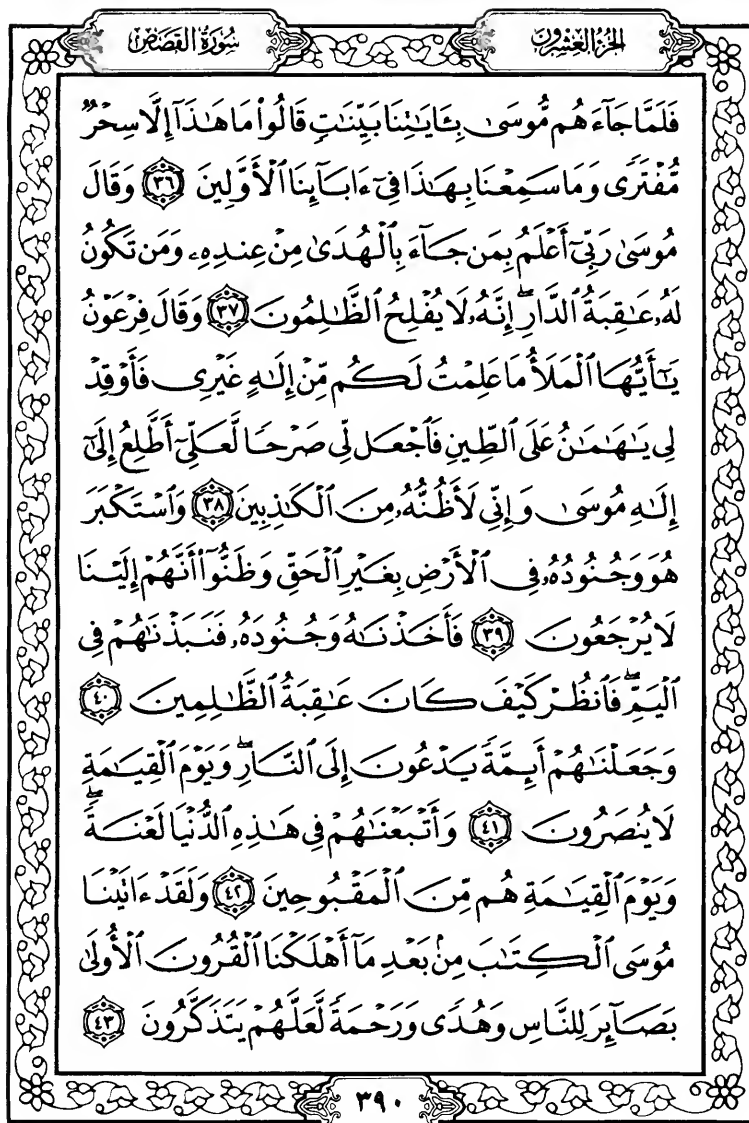 الجزء العشرون
سورة القصص
فَلَمَّا جَآءَهُم مُّوسَىٰ بِـَٔايَٰتِنَا بَيِّنَٰتٖ قَالُواْ مَا هَٰذَآ إِلَّا سِحۡرٞ
مُّفۡتَرٗى وَمَا سَمِعۡنَا بِهَٰذَا فِيٓ ءَابَآئِنَا ٱلۡأَوَّلِينَ ٣٦ وَقَالَ
مُوسَىٰ رَبِّيٓ أَعۡلَمُ بِمَن جَآءَ بِٱلۡهُدَىٰ مِنۡ عِندِهِۦ وَمَن تَكُونُ
لَهُۥ عَٰقِبَةُ ٱلدَّارِۚ إِنَّهُۥ لَا يُفۡلِحُ ٱلظَّٰلِمُونَ ٣٧ وَقَالَ فِرۡعَوۡنُ
يَٰٓأَيُّهَا ٱلۡمَلَأُ مَا عَلِمۡتُ لَكُم مِّنۡ إِلَٰهٍ غَيۡرِي فَأَوۡقِدۡ
لِي يَٰهَٰمَٰنُ عَلَى ٱلطِّينِ فَٱجۡعَل لِّي صَرۡحٗا لَّعَلِّيٓ أَطَّلِعُ إِلَىٰٓ
إِلَٰهِ مُوسَىٰ وَإِنِّي لَأَظُنُّهُۥ مِنَ ٱلۡكَٰذِبِينَ ٣٨ وَٱسۡتَكۡبَرَ
هُوَ وَجُنُودُهُۥ فِي ٱلۡأَرۡضِ بِغَيۡرِ ٱلۡحَقِّ وَظَنُّوٓاْ أَنَّهُمۡ إِلَيۡنَا
لَا يُرۡجَعُونَ ٣٩ فَأَخَذۡنَٰهُ وَجُنُودَهُۥ فَنَبَذۡنَٰهُمۡ فِي
ٱلۡيَمِّۖ فَٱنظُرۡ كَيۡفَ كَانَ عَٰقِبَةُ ٱلظَّٰلِمِينَ ٤٠
وَجَعَلۡنَٰهُمۡ أَئِمَّةٗ يَدۡعُونَ إِلَى ٱلنَّارِۖ وَيَوۡمَ ٱلۡقِيَٰمَةِ
لَا يُنصَرُونَ ٤١ وَأَتۡبَعۡنَٰهُمۡ فِي هَٰذِهِ ٱلدُّنۡيَا لَعۡنَةٗۖ
وَيَوۡمَ ٱلۡقِيَٰمَةِ هُم مِّنَ ٱلۡمَقۡبُوحِينَ ٤٢ وَلَقَدۡ ءَاتَيۡنَا
مُوسَى ٱلۡكِتَٰبَ مِنۢ بَعۡدِ مَآ أَهۡلَكۡنَا ٱلۡقُرُونَ ٱلۡأُولَىٰ
بَصَآئِرَ لِلنَّاسِ وَهُدٗى وَرَحۡمَةٗ لَّعَلَّهُمۡ يَتَذَكَّرُونَ ٤٣
٣٩٠